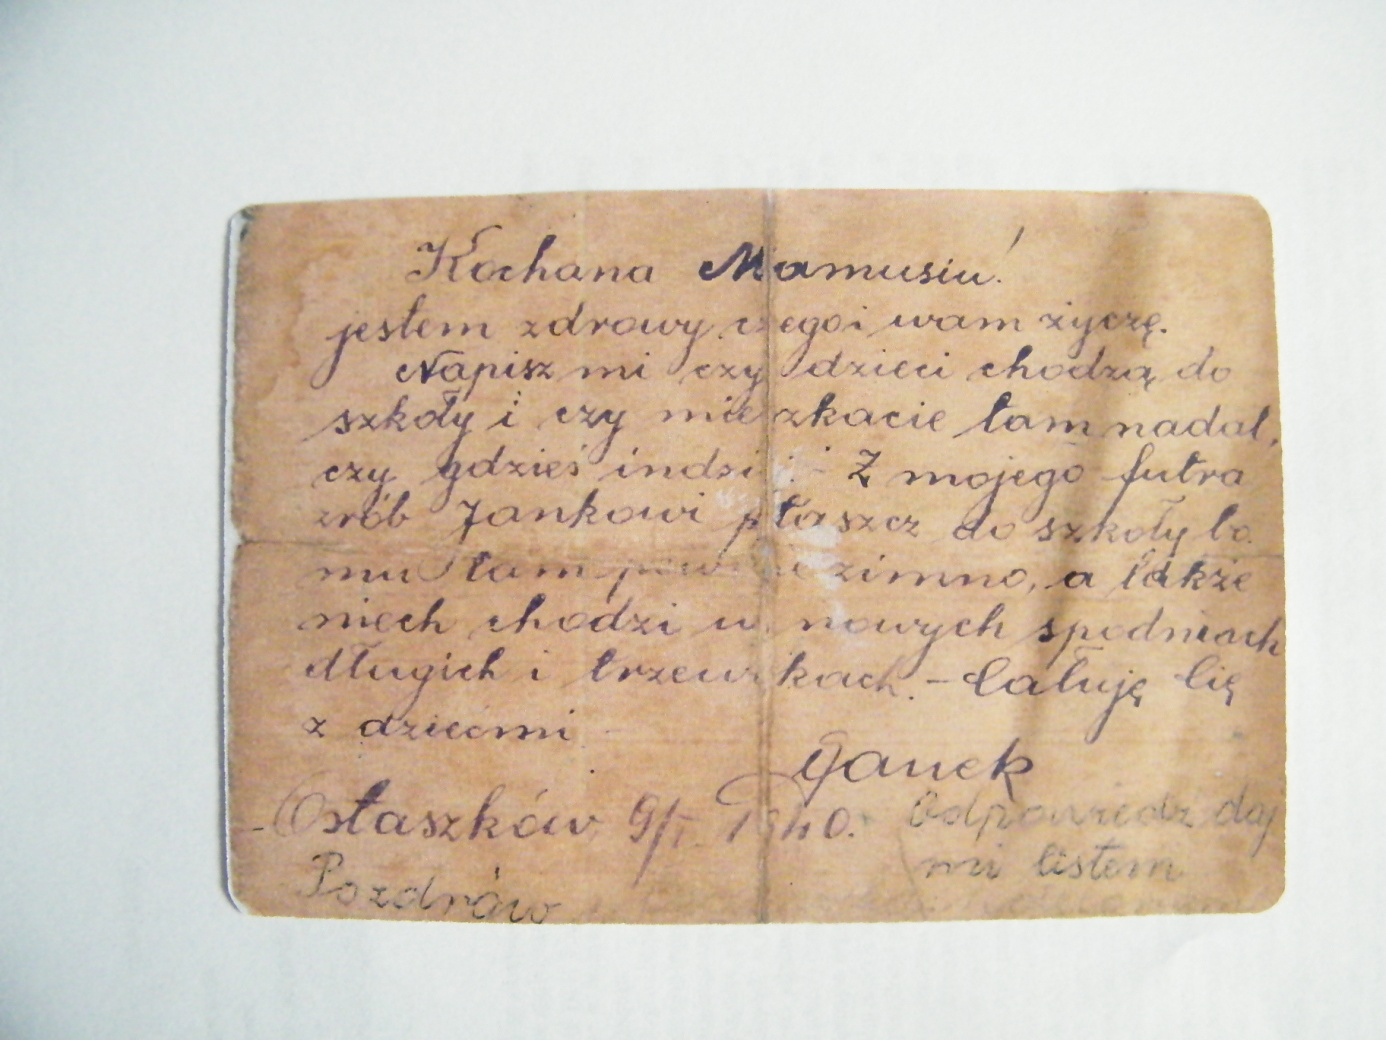 Kochana Mamusiu!
jestem zdrowy czego i wam życzę.
Napisz mi czy dzieci chodzą do
szkoły i czy mieszkacie tam nadal,
czy gdzieś indziej - Z mojego futra
zrób Jankowi płaszcz do szkoły bo
mu tam pewnie zimno, a także
niech chodzi w nowych spodniach
długich i trzewikach. - Całuję Cię
z dziećmi
Janek
Ostaszków 9/I. 1940.
Odpowiedź daj
mi listem
Pozdrów